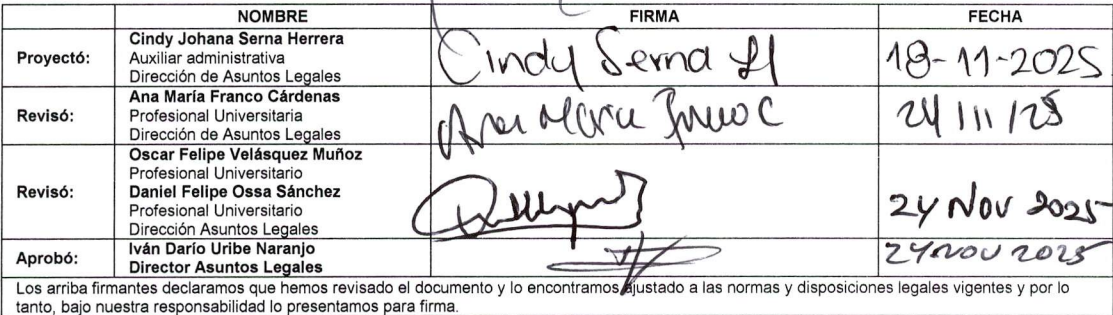 NOMBRE FIRMA FECHA
Proyectó: Cindy Johana Serna Herrera
Auxiliar administrativa
Dirección de Asuntos Legales
Cindy Serna H 18-11-2025
Revisó: Ana María Franco Cárdenas
Profesional Universitaria
Dirección de Asuntos Legales
Ana María Franco C 24/11/25
Revisó: Oscar Felipe Velásquez Muñoz
Profesional Universitario
Daniel Felipe Ossa Sánchez
Profesional Universitario
Dirección Asuntos Legales
24 Nov 2025
Aprobó: Iván Darío Uribe Naranjo
Director Asuntos Legales
24 nov 2025
Los arriba firmantes declaramos que hemos revisado el documento y lo encontramos ajustado a las normas y disposiciones legales vigentes y por lo
tanto, bajo nuestra responsabilidad lo presentamos para firma.